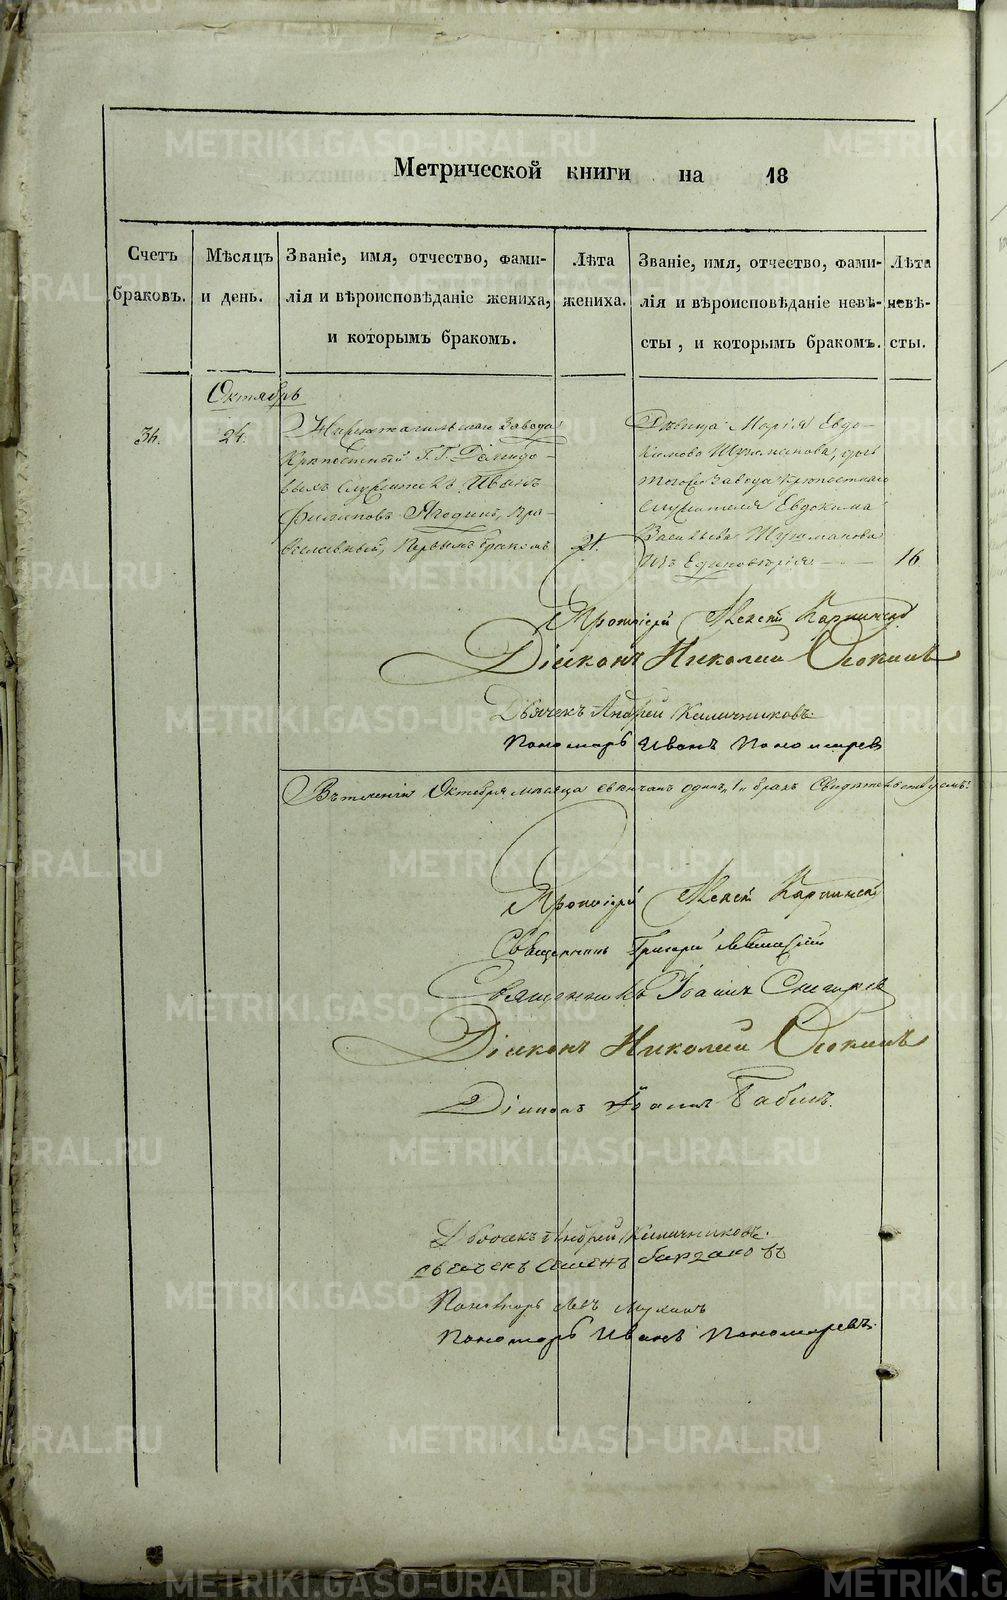 Метрической книги на 18
Счетъ браковъ.
Мѣсяцъ и день.
Званіе, имя, отчество, фами-
лія и вѣроисповѣданіе жениха,
и которымъ бракомъ.
Лѣта
жениха.
Званіе, имя, отчество, фами-
лія и вѣроисповѣданіе невѣ-
сты, и которымъ бракомъ.
Лѣта
невѣ-
сты.
Октябрь
34.
24.
Нижнетагильскаго завода
крѣпостный Г.Г. Демидо-
выхъ служитель Иванъ
Филиповъ Ягодинъ, пра-
вославный, первымъ бракомъ
21.
Дѣвица Марія Евдо-
кимова дочь
тогоже завода крѣпостнаго
служителя Евдокима
Васильева
изъ Единовѣрія
16
Протоіерей Алексѣй Карпинскій
Діаконъ Николай Осокинъ
Дьячекъ Андрей Калачниковъ
Пономарь Иванъ Пономаревъ
Въ теченіи Октября мѣсяца свенчанъ одинъ „1„ бракъ Свидѣтельствуемъ:
Протоіерей Алексѣй Карпинскій
Священникъ Григорій
Священникъ Іоаннъ Снигиревъ
Діаконъ Николай Осокинъ
Діаконъ Іоаннъ Бабинъ.
Дьячекъ Андрей Калачниковъ.
Дьячекъ Семенъ
Пономарь
Пономарь Иванъ Пономаревъ.
METRIKI.GASO-URAL.RU